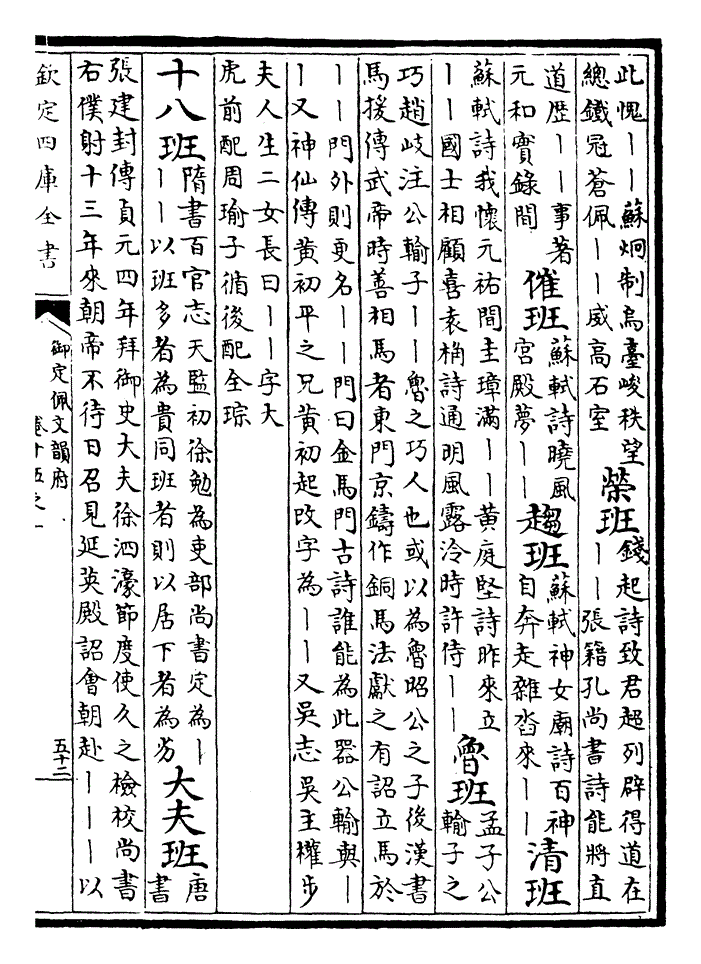 此愧〡〡蘇炯制烏臺峻秩望
總鐵冠蒼佩〡〡威高石室
榮班
錢起詩致君超列辟得道在
〡〡張籍孔尚書詩能將直
道歷〡〡事著
元和實錄間
催班
蘇軾詩曉風
宮殿夢〡〡
趨班
蘇軾神女廟詩百神
自奔走雜沓來〡〡
清班
蘇軾詩我懷元祐間圭璋滿〡〡黃庭堅詩昨來立
〡〡國士相顧喜袁桷詩通明風露泠時許侍〡〡
魯班
孟子公
輸子之
巧趙岐注公輸子〡〡魯之巧人也或以為魯昭公之子後漢書
馬援傳武帝時善相馬者東門京鑄作銅馬法獻之有詔立馬於
〡〡門外則更名〡〡門曰金馬門古詩誰能為此器公輸與〡
〡又神仙傳黄初平之兄黄初起改字為〡〡又吳志吳主權步
夫人生二女長曰〡〡字大
虎前配周瑜子循後配全琮
十八班
隋書百官志天監初徐勉為吏部尚書定為〡
〡〡以班多者為貴同班者則以居下者為劣
大夫班
唐
書
張建封傳貞元四年拜御史大夫徐泗濠節度使久之檢校尚書
右僕射十三年來朝帝不待日召見延英殿詔會朝赴〡〡〡以
欽定四庫全書
御定佩文韻府
卷十五之一
五十二